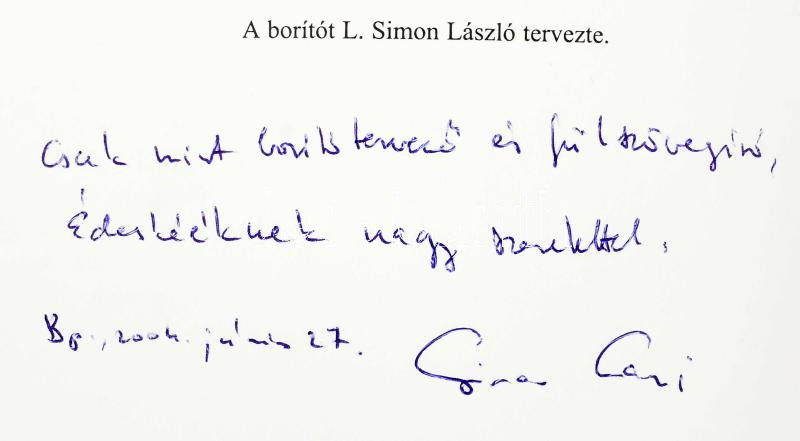 A borítót L. Simon László tervezte.
Csak mint borítótervező és fülszövegíró,
Édeskééknek nagy szeretettel.
Bp., 2004. június 27.
Simon Laci